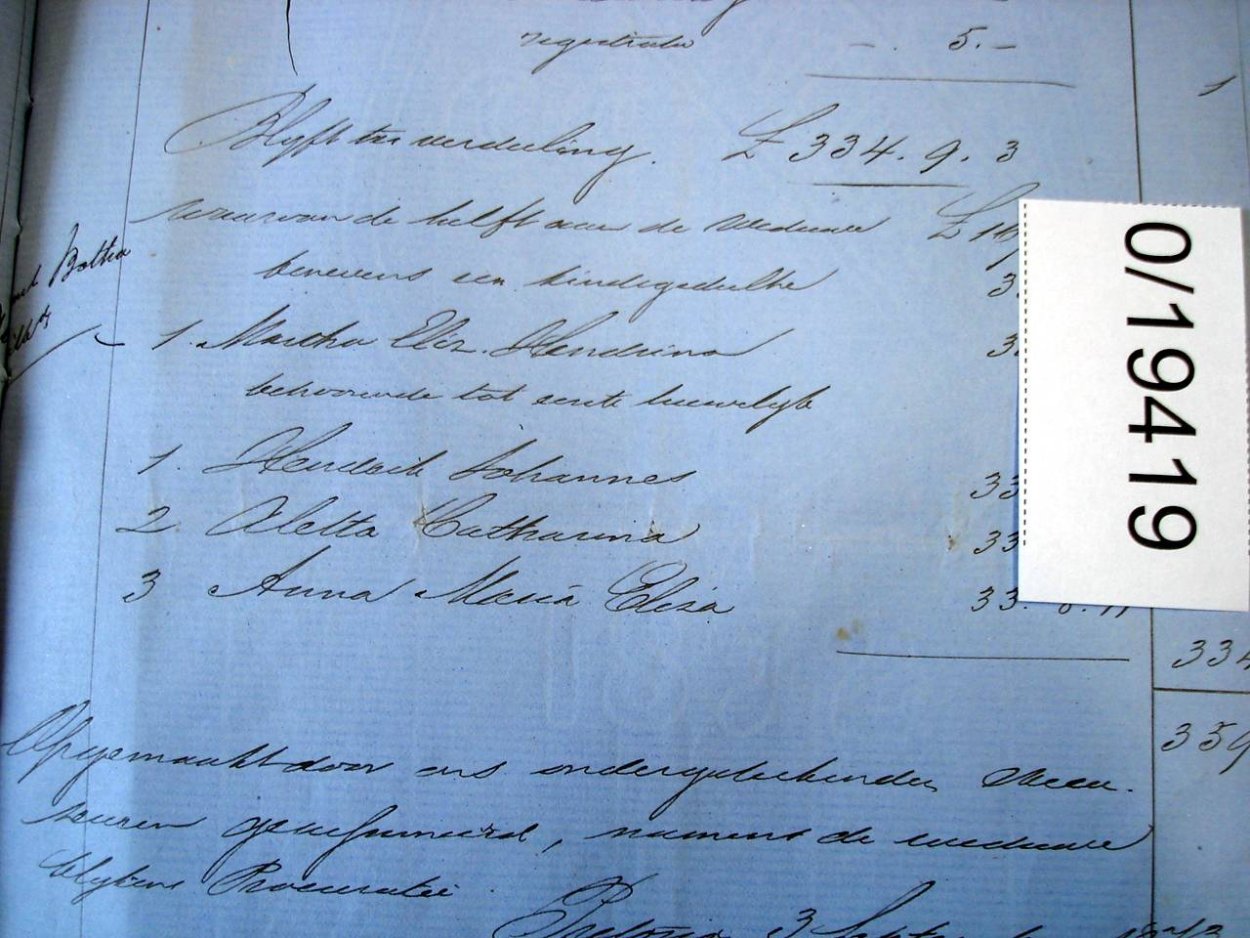 registratie - . 5. -
1
Blyft ter verdeeling. £ 334. 9. 3
waarvan de helft aan de Weduwe £ 16
benevens een kindsgedeelte 3
Botha
1. Martha Eliz. Hendrina 3
behoorende tot eerste huwelyk
1. Hendrik Johannes 33
2. Aletta Catharina 33
3 Anna Maria Eliza 33. 8. 11
334
359
Opgemaakt door ons ondergeteekenden Execu-
teuren geassumeerd, namens de weduwe
blykens Procuratie
Pretoria 3 September 1873
0/19419